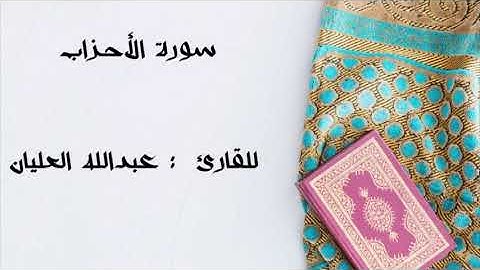 سورة الأحزاب
للقارئ : عبدالله العليان